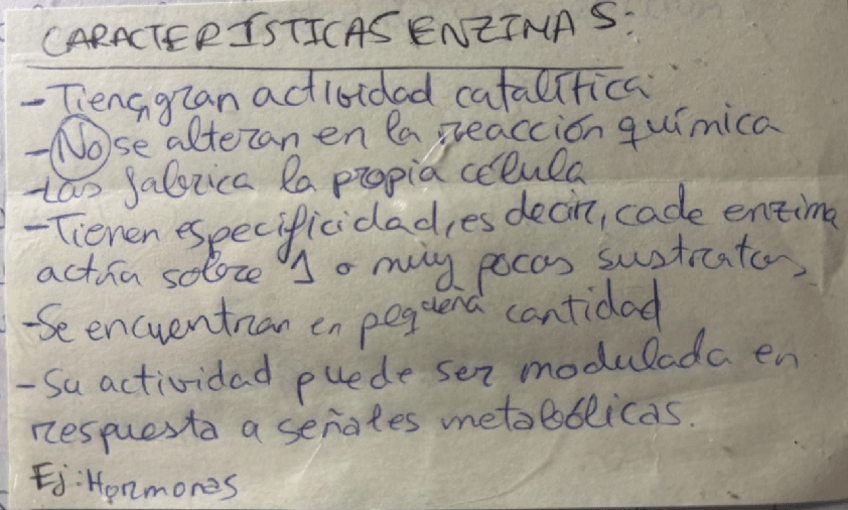 CARACTERÍSTICAS ENZIMAS:
- Tienen gran actividad catalítica
- No se alteran en la reacción química
- Las fabrica la propia célula
- Tienen especificidad, es decir, cada enzima
actúa sobre 1 o muy pocos sustratos
- Se encuentran en pequeña cantidad
- Su actividad puede ser modulada en
respuesta a señales metabólicas.
Ej: Hormonas